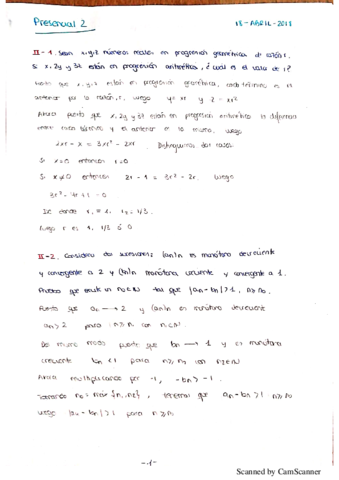 Presencial 2
18-ABRIL-2018
II-1. Sean x,y,z números reales en progresión geométrica de razón r.
Si x, 2y y 3z están en progresión aritmética, ¿cuál es el valor de r?
que x, y, z están en progresión geométrica, cada término es el
anterior por la razón, r, luego y=xr y z=xr²
Ahora puesto que x, 2y y 3z están en progresión aritmética la diferencia
entre cada término y el anterior es la misma, luego
2xr - x = 3xr² - 2xr. Distinguimos dos casos:
Si x=0 entonces r=0
Si x≠0 entonces 2r - 1 = 3r² - 2r. Luego
3r² - 4r + 1 = 0
De donde r₁ = 1, r₂ = 1/3.
Luego r es 1, 1/3 ó 0
II-2. Considera dos sucesiones: (an)n es monótona decreciente
y convergente a 2 y (bn)n monótona creciente y convergente a 1.
Prueba que existe un n₀∈N tal que |an-bn|>1, n≥n₀.
Puesto que an → 2 y (an)n es monótona decreciente
an > 2 para n≥n₁ con n₁∈N
Del mismo modo puesto que bn → 1 y es monótona
creciente bn < 1 para n≥n₂ con n₂∈N
Ahora multiplicando por -1, -bn > -1
Tomando n₀ = máx {n₁, n₂}, tenemos que an-bn > 1 n≥n₀
Luego |an-bn| > 1 para n≥n₀
-1-
Scanned by CamScanner